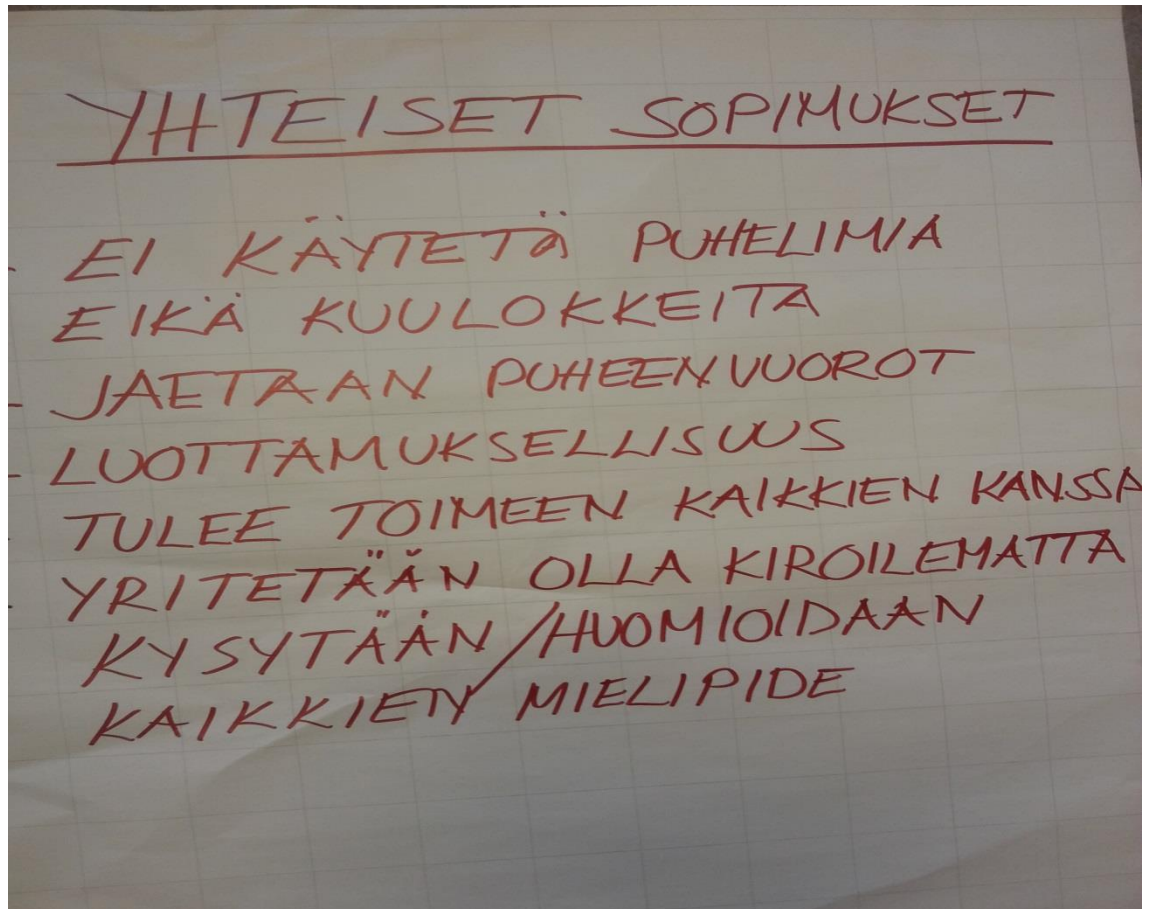 YHTEISET SOPIMUKSET
- EI KÄYTETÄ PUHELIMIA
EIKÄ KUULOKKEITA
- JAETAAN PUHEENVUOROT
- LUOTTAMUKSELLISUUS
- TULEE TOIMEEN KAIKKIEN KANSSA
- YRITETÄÄN OLLA KIROILEMATTA
KYSYTÄÄN/HUOMIOIDAAN
KAIKKIEN MIELIPIDE